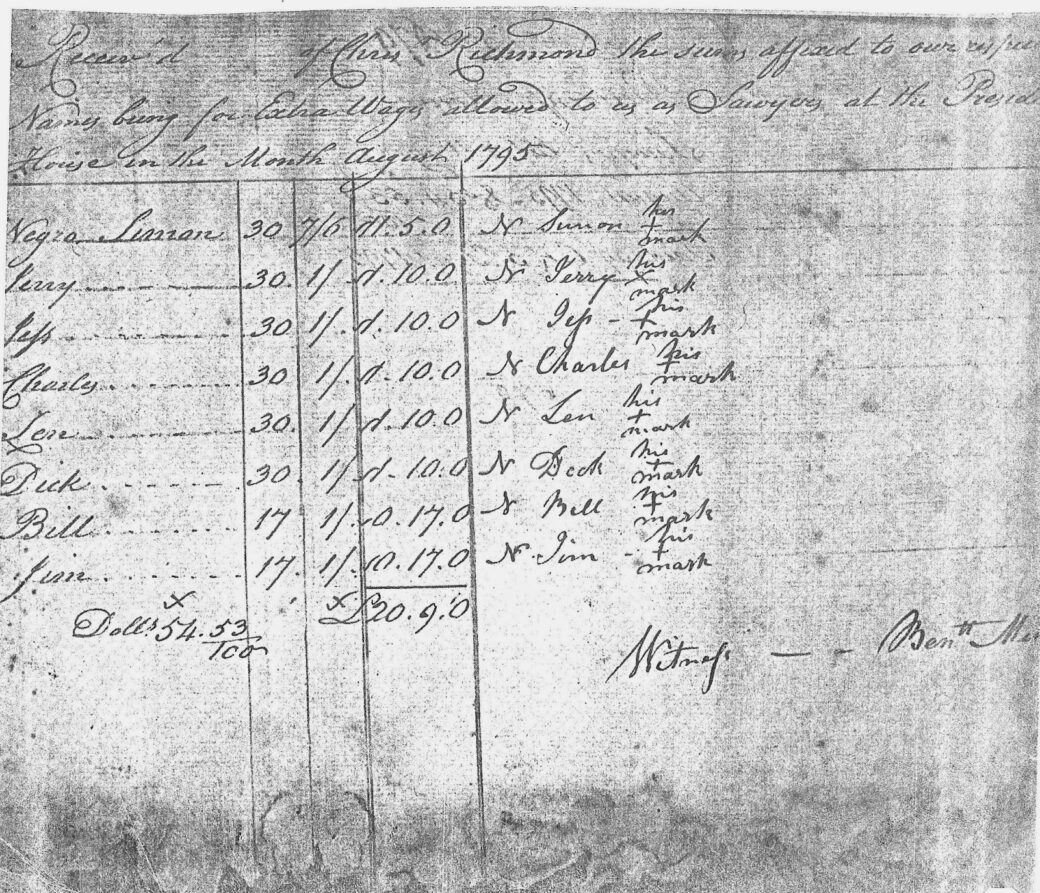 Receiv'd of Chris.r Richmond the sums affixed to our respec
Names being for Extra Wages allowed to us as Sawyers at the Presid
House in the Month August 1795
Negro Simon 30 7/6 11.5.0 N Simon his + mark
Jerry 30. 1/ 1.10.0 N Jerry his x mark
Jess 30 1/. 1.10.0 N Jess - his + mark
Charles 30 1/. 1.10.0 N Charles his + mark
Len 30. 1/ 1.10.0 N Len his + mark
Dick 30. 1/ 1.10.0 N Dick his + mark
Bill 17 1/. 0.17.0 N Bill his + mark
Jim 17. 1/. 0.17.0 N Jim - his + mark
Doll.s 54.53/100 x £20.9.0
Witness — - Ben.tt